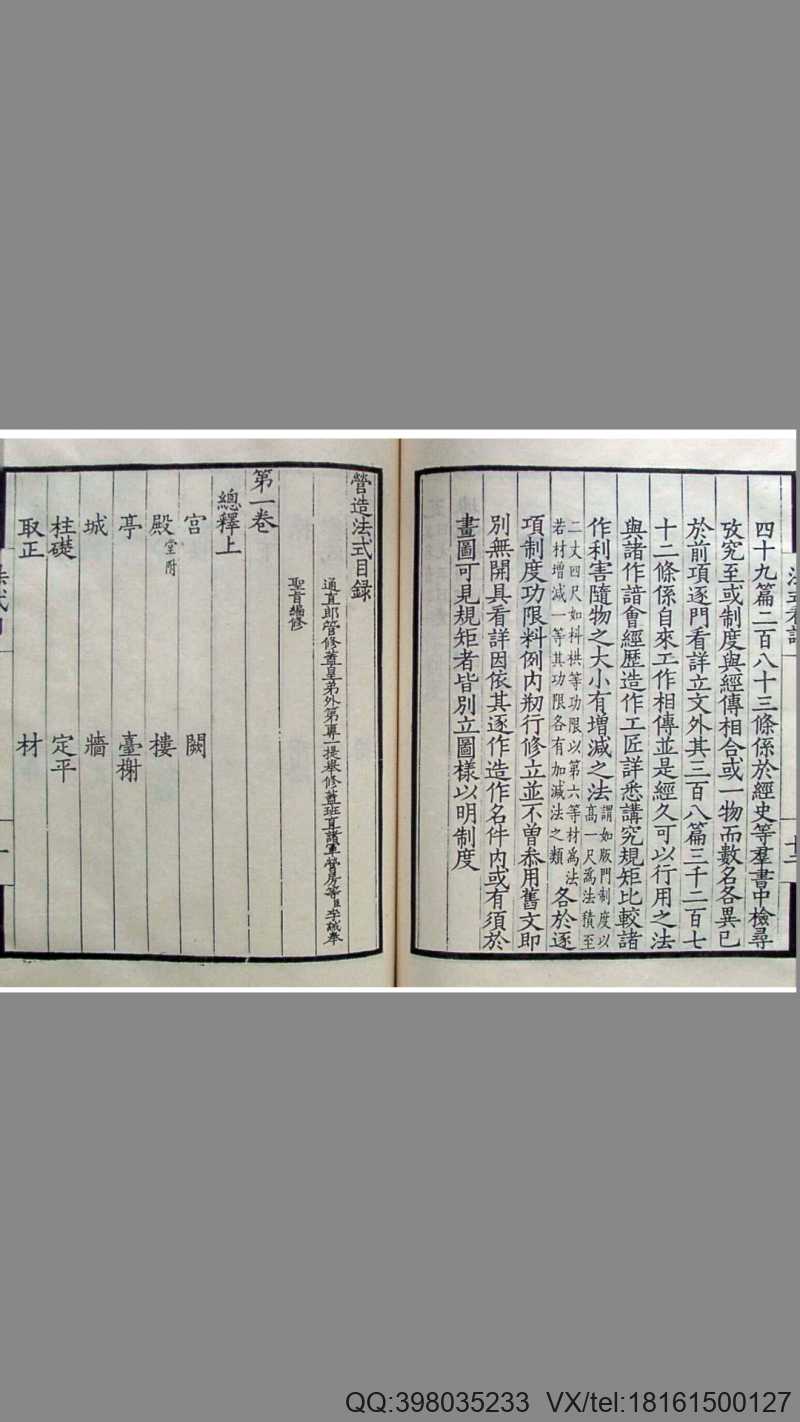 四十九篇二百八十三條係於經史等羣書中檢尋
攷究至或制度與經傳相合或一物而數名各異已
於前項逐門看詳立文外其三百八篇三千二百七
十二條係自來工作相傳並是經久可以行用之法
與諸作諳會經歷造作工匠詳悉講究規矩比較諸
作利害隨物之大小有增減之法謂如版門制度以高一尺爲法積至
二丈四尺如枓栱等功限以第六等材爲法若材增減一等其功限各有加減法之類各於逐
項制度功限料例內刱行修立並不曾叅用舊文即
別無開具看詳因依其逐作造作名件內或有須於
畫圖可見規矩者皆別立圖樣以明制度
營造法式目録
通直郎管修蓋皇弟外第專一提舉修蓋班直諸軍營房等臣李誡奉
聖旨編修
第一卷
總釋上
宮 闕
殿堂附 樓
亭 臺榭
城 牆
柱礎 定平
取正 材
QQ:398035233 VX/tel:18161500127